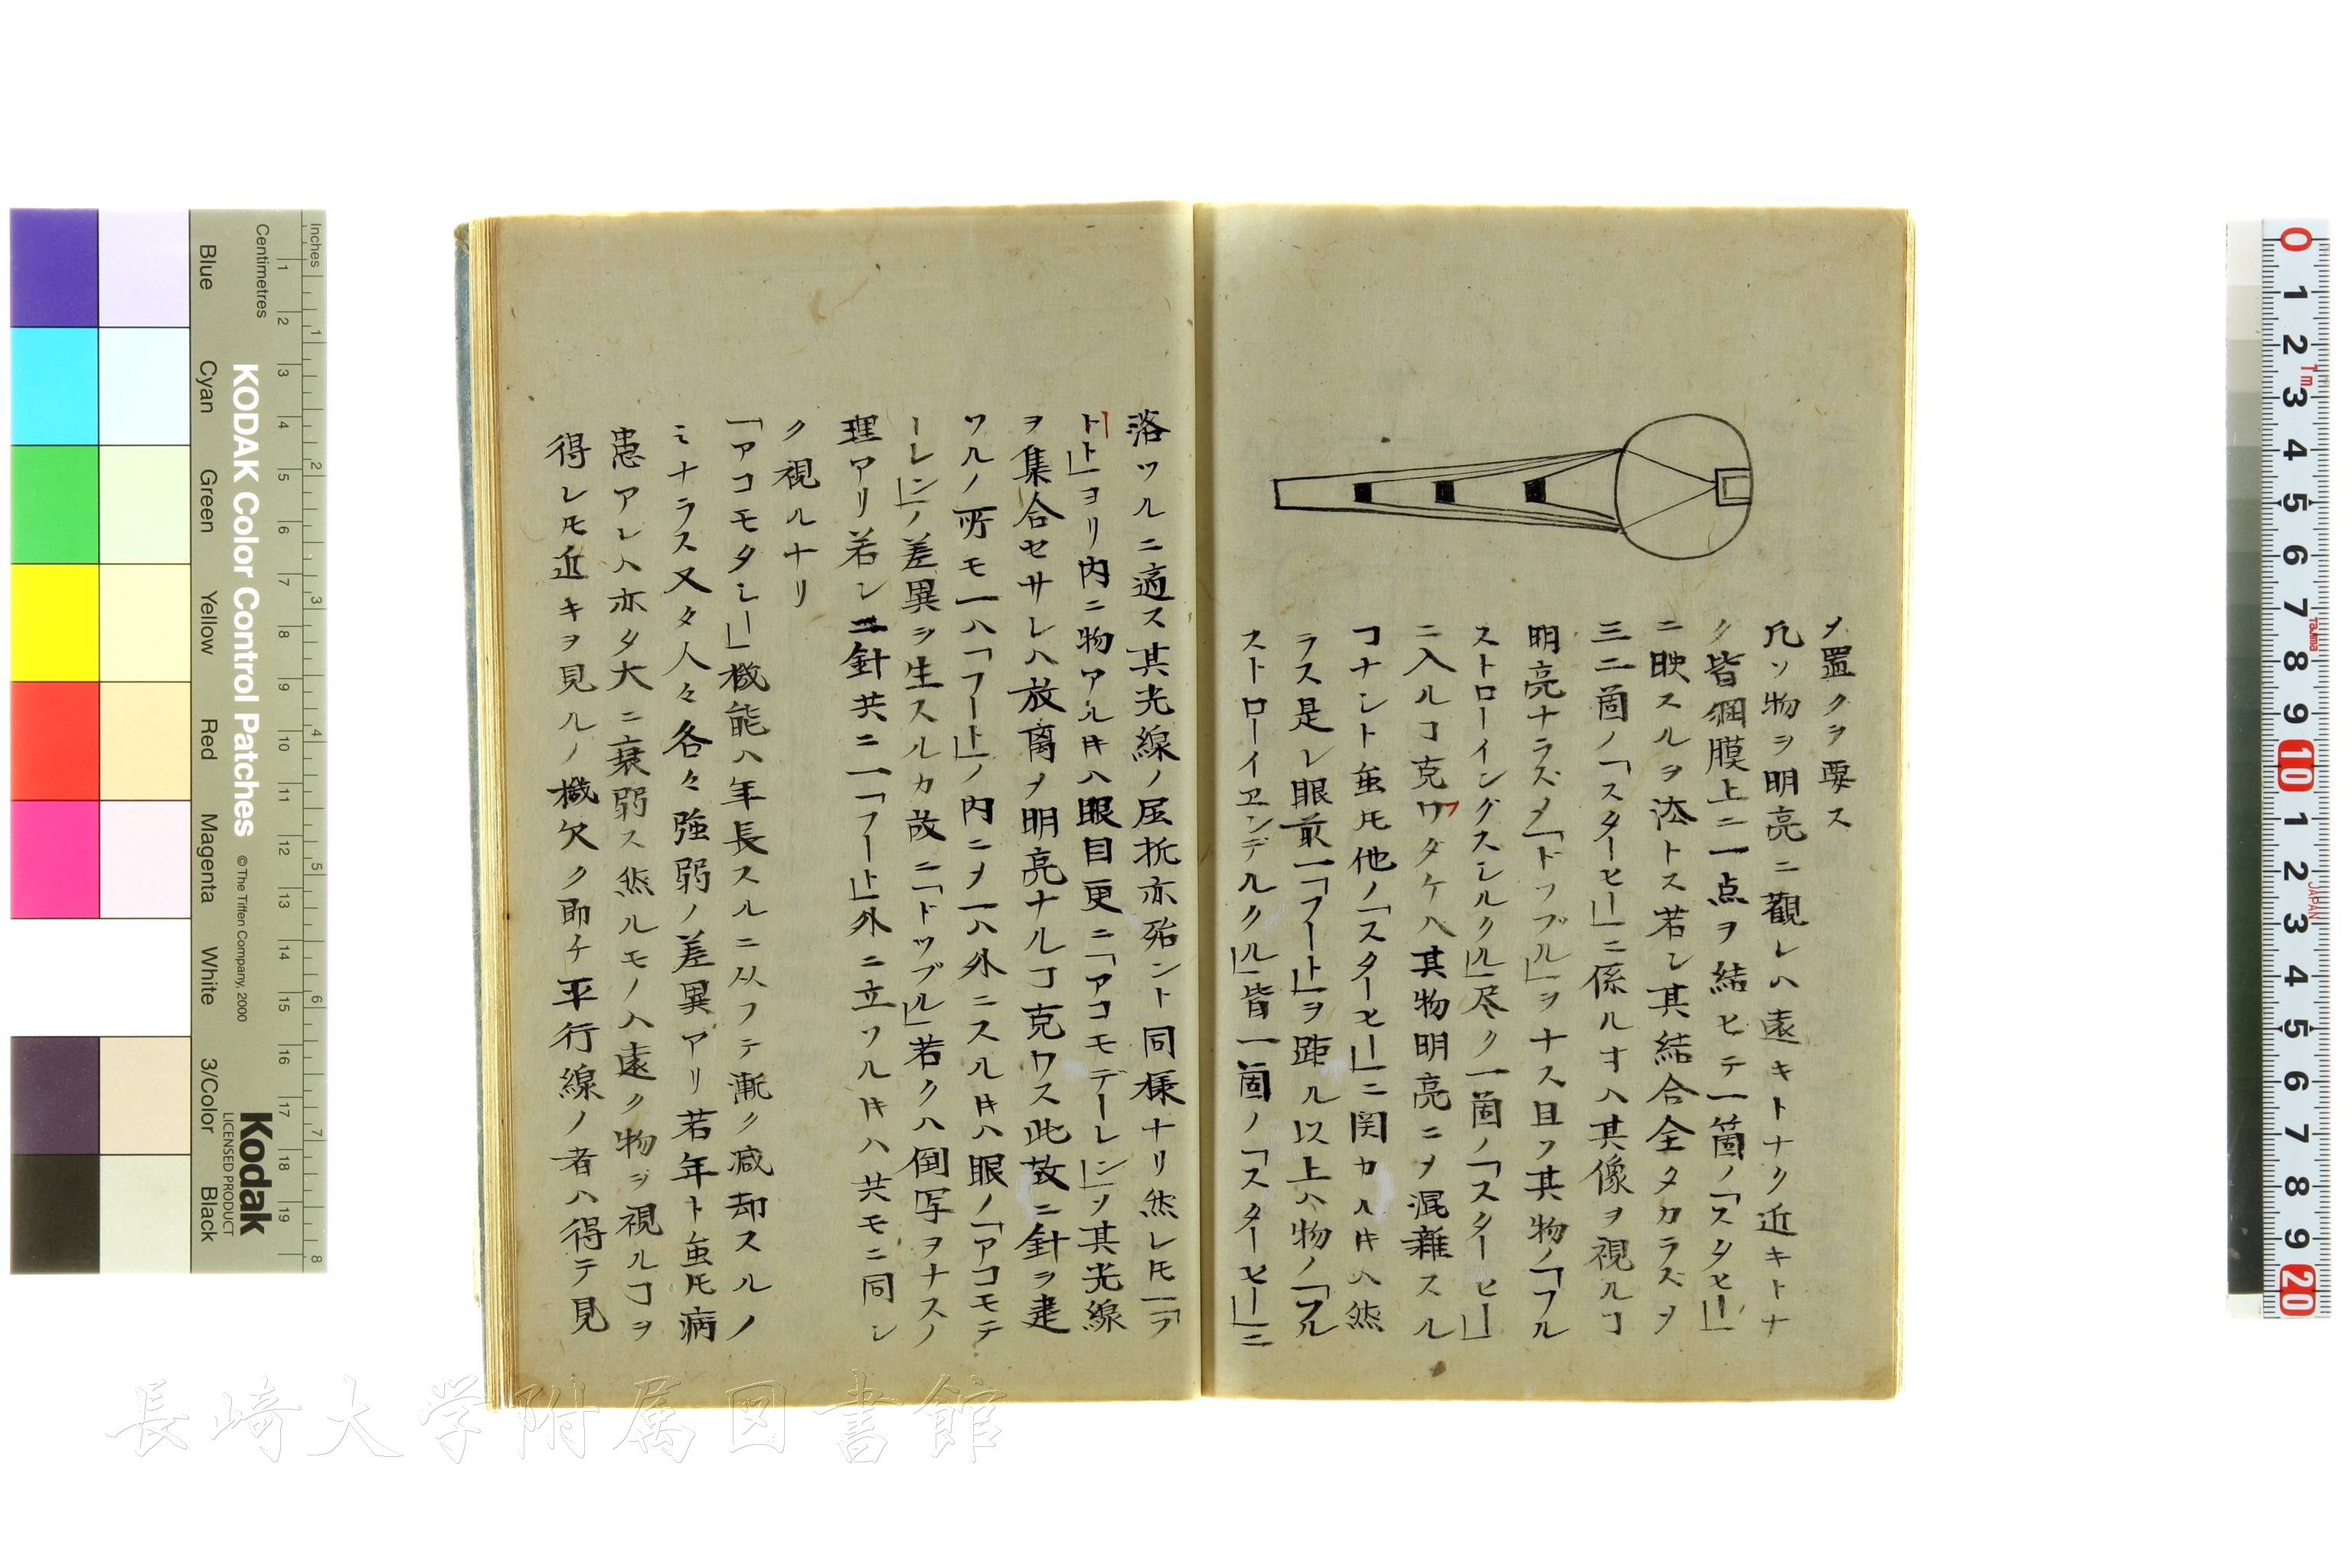 ヲ置クヲ要ス
凡ソ物ヲ明亮ニ觀レハ遠キトナク近キトナ
ク皆網膜上ニ一点ヲ結ヒテ一箇ノ「スタヒー」
ニ映スルヲ法トス若シ其結合全タカラズヲ
三二箇ノ「スターヒー」ニ係ルオハ其像ヲ視ルヿ
明亮ナラズメ「ドツブル」ヲナス且ツ其物ノ「フル
ストローイングスシルクル」尽ク一箇ノ「スターヒー」
ニ入ルヿ克ワタケハ其物明亮ニヲ混雜スル
ヿナシト虽𪜈他ノ「スターヒー」ニ関カルㇳキハ然
ラス是レ眼前一「フート」ヲ距ル以上ハ物ノ「フル
ストローイエンデルクル」皆一箇ノ「スターヒー」ニ
落ツルニ適ス其光線ノ屈折亦殆ント同様ナリ然レ𪜈一「フ
ート」ヨリ内ニ物アル𪜈ハ眼目更ニ「アコモデーレン」ソ其光線
ヲ集合セサレハ放离ヲ明亮ナルヿ克ワス此故ニ針ヲ建
ツルノ所モ一ハ「フート」ノ内ニヲ一ハ外ニスル𪜈ハ眼ノ「アコモテ
ーレン」ノ差異ヲ生スルカ故ニ「ドツブル」若クハ倒写ヲナスノ
理アリ若シ二針共ニ一「フート」外ニ立ツル𪜈ハ共モニ同シ
ク視ルナリ
「アコモタシー」機能ハ年長スルニ从フテ漸ク减却スルノ
ミナラス又タ人々各々強弱ノ差異アリ若年ト虽𪜈病
患アレハ亦タ大ニ衰弱ス然ルモノハ遠ク物ヲ視ルヿヲ
得レ𪜈近キヲ見ルノ機欠ク即チ平行線ノ者ハ得テ見
KODAK Color Control Patches
© The Tiffen Company, 2000
Kodak
LICENSED PRODUCT
Inches
Centimetres
Blue
Cyan
Green
Yellow
Red
Magenta
White
3/Color
Black
長崎大学附属図書館